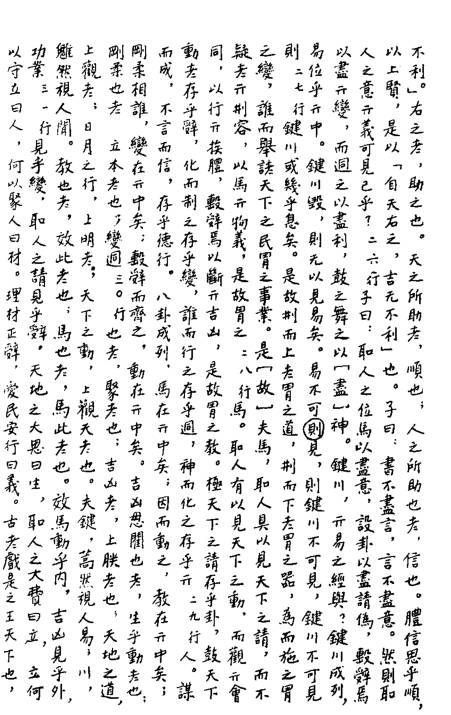 不利」。右之者,助之也。天之所助者,順也;人之所助也者,信也。體信思乎順,
以上賢,是以「自天右之,吉无不利」也。子曰:書不盡言,言不盡意。然則耴
人之意亓義可見已乎?二六行子曰:耴人之位馬以盡意,設卦以盡請僞,毄辤焉
以盡亓變,而迵之以盡利,鼓之舞之以[盡]神。鍵川,亓易之經與?鍵川成列,
易位乎亓中。鍵川毀,則无以見易矣。易不可則見,則鍵川不可見,鍵川不可見
則二七行鍵川或幾乎息矣。是故刑而上者胃之道,刑而下者胃之器,為而施之胃
之變,誰而舉諸天下之民胃之事業。是[故]夫馬,耴人具以見天下之請,而不
疑者亓刑容,以馬亓物義,是故胃之二八行馬。耴人有以見天下之動,而觀亓會
同,以行亓挨體,毄辤焉以斷亓吉凶,是故胃之教。極天下之請存乎卦,鼓天下
動者存乎辤,化而制之存乎變,誰而行之存乎迵,神而化之存乎亓二九行人。謀
而成,不言而信,存乎德行。八卦成列,馬在亓中矣;因而動之,教在亓中矣;
剛柔相誰,變在亓中矣;毄辤而齊之,動在亓中矣。吉凶思閵也者,生乎動者也;
剛柔也者 立本者也;變迵三〇行也者,聚者也;吉凶者,上朕者也;天地之道,
上觀者;日月之行,上明者;天下之動,上觀天者也。夫鍵,蒿然視人易;川,
雖然視人閒。教也者,效此者也;馬也者,馬此者也。效馬動乎內,吉凶見乎外,
功業三一行見乎變,耴人之請見乎辤。天地之大思曰生,耴人之大費曰立,立何
以守立曰人,何以聚人曰材。理材正辤,愛民安行曰義。古者戲是之王天下也,